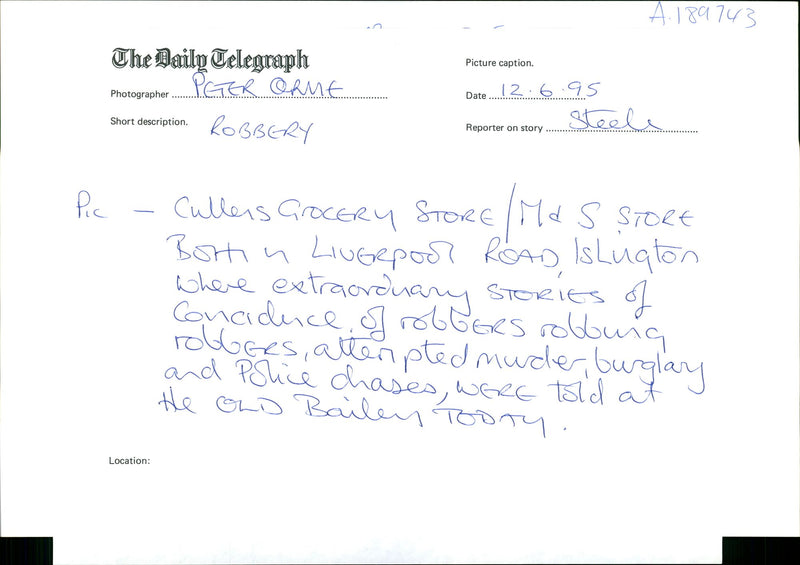 A.189743
The Daily Telegraph
Picture caption.
Photographer PETER ORME
Date 12.6.95
Short description. ROBBERY
Reporter on story Steele
Pic - Cullens GROCERY STORE / M & S STORE
BOTH in LIVERPOOL ROAD, ISLington
where extraordinary STORIES of
Concidence, of robbers robbing
robbers, attempted murder, burglary
and Police chases, WERE told at
the OLD Bailey TODAY.
Location: